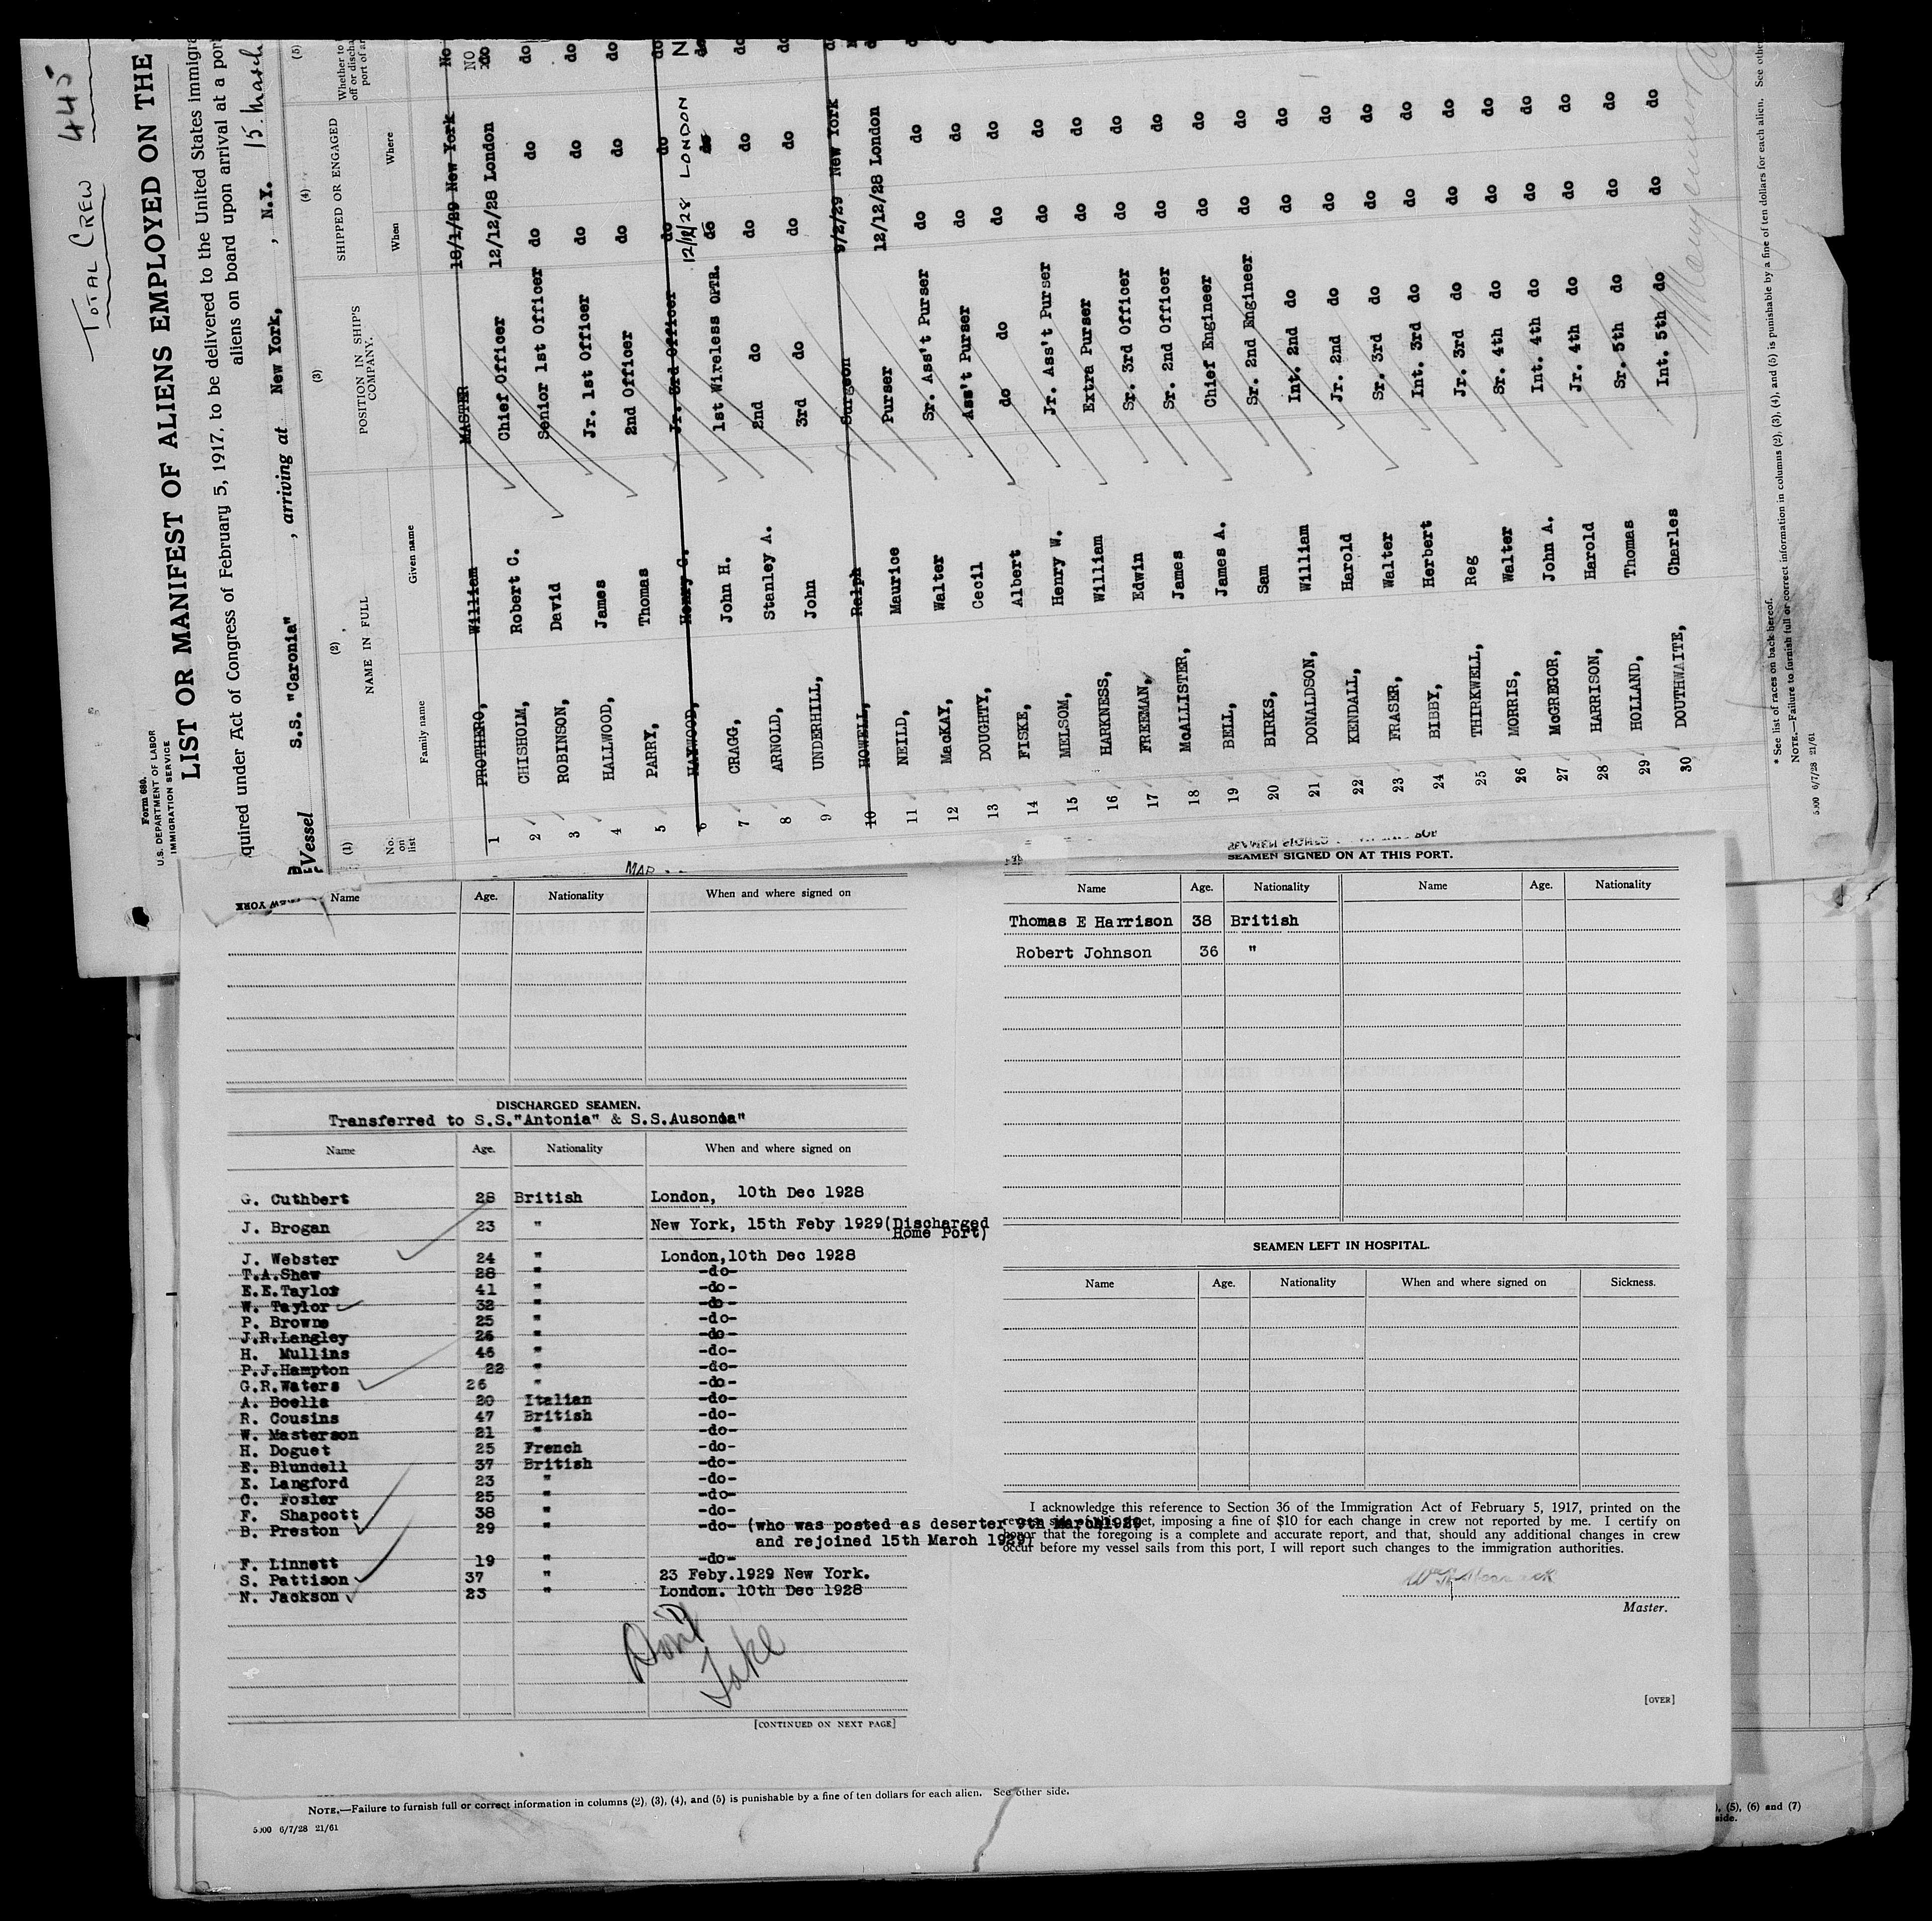 TOTAL CREW 445
Form 680.
U.S. DEPARTMENT OF LABOR
IMMIGRATION SERVICE
LIST OR MANIFEST OF ALIENS EMPLOYED ON THE
quired under Act of Congress of February 5, 1917, to be delivered to the United States immigra
aliens on board upon arrival at a por
Vessel S.S. "Caronia", arriving at New York, , N.Y. 15 March
(1) (2) (3) (4) (5)
No. on list NAME IN FULL POSITION IN SHIP'S COMPANY. SHIPPED OR ENGAGED Whether to off or discha port of ar
Family name Given name When Where
1 PROTHERO, William MASTER 18/1/29 New York No
2 CHISHOLM, Robert C. Chief Officer 12/12/28 London NO do
3 ROBINSON, David Senior 1st Officer do do do
4 HALLWOOD, James Jr. 1st Officer do do do
5 PARRY, Thomas 2nd Officer do do do
6 HAYWOOD, Henry C. Jr. 3rd Officer do do do
7 CRAGG, John H. 1st Wireless OPTR. 12/12/28 do LONDON do N do
8 ARNOLD, Stanley A. 2nd do do do do
9 UNDERHILL, John 3rd do do do do
10 HOWELL, Ralph Surgeon 9/2/29 New York do
11 NEILD, Maurice Purser 12/12/28 London do
12 MacKAY, Walter Sr. Ass't Purser do do do
13 DOUGHTY, Cecil Ass't Purser do do do
14 FISKE, Albert do do do do do
15 MELSOM, Henry W. Jr. Ass't Purser do do
16 HARKNESS, William Extra Purser do do
17 FREEMAN, Edwin Sr. 3rd Officer do do
18 McALLISTER, James Sr. 2nd Officer do do
19 BELL, James A. Chief Engineer do do
20 BIRKS, Sam Sr. 2nd Engineer do do
21 DONALDSON, William Int. 2nd do do do
22 KENDALL, Harold Jr. 2nd do do do
23 FRASER, Walter Sr. 3rd do do do
24 BIBBY, Herbert Int. 3rd do do do
25 THIRKWELL, Reg Jr. 3rd do do do
26 MORRIS, Walter Sr. 4th do do do
27 McGREGOR, John A. Int. 4th do do do
28 HARRISON, Harold Jr. 4th do do do
29 HOLLAND, Thomas Sr. 5th do do do
30 DOUTHWAITE, Charles Int. 5th do do do
* See list of races on back hereof.
NOTE.—Failure to furnish full or correct information in columns (2), (3), (4), and (5) is punishable by a fine of ten dollars for each alien. See othe
5000 6/7/28 21/61
MAR
NEW YORK
Name Age. Nationality When and where signed on
DISCHARGED SEAMEN.
Transferred to S.S."Antonia" & S.S.Ausonia"
Name Age. Nationality When and where signed on
G. Cuthbert 28 British London, 10th Dec 1928
J. Brogan 23 " New York, 15th Feby 1929(Discharged Home Port)
J. Webster 24 " London,10th Dec 1928
T.A.Shaw 28 " -do-
E.E.Taylor 41 " -do-
W. Taylor 32 " -do-
P. Browne 25 " -do-
J.R.Langley 26 " -do-
H. Mullins 46 " -do-
P.J.Hampton 22 " -do-
G.R.Waters 26 " -do-
A. Boella 20 Italian -do-
R. Cousins 47 British -do-
W. Masterson 21 " -do-
H. Doguet 25 French -do-
E. Blundell 37 British -do-
E. Langford 23 " -do-
C. Fosler 25 " -do-
F. Shapcott 38 " -do-
B. Preston 29 " -do- (who was posted as deserter 9th March1929
and rejoined 15th March 1929)
F. Linnett 19 " -do-
S. Pattison 37 " 23 Feby.1929 New York.
N. Jackson 23 " London. 10th Dec 1928
Don't
Take
[CONTINUED ON NEXT PAGE]
SEAMEN SIGNED ON AT THIS PORT.
Name Age. Nationality Name Age. Nationality
Thomas E Harrison 38 British
Robert Johnson 36 "
SEAMEN LEFT IN HOSPITAL.
Name Age. Nationality When and where signed on Sickness.
I acknowledge this reference to Section 36 of the Immigration Act of February 5, 1917, printed on the
et, imposing a fine of $10 for each change in crew not reported by me. I certify on
honor that the foregoing is a complete and accurate report, and that, should any additional changes in crew
occur before my vessel sails from this port, I will report such changes to the immigration authorities.
Master.
[OVER]
NOTE.—Failure to furnish full or correct information in columns (2), (3), (4), and (5) is punishable by a fine of ten dollars for each alien. See other side.
5000 6/7/28 21/61
), (5), (6) and (7)
side.